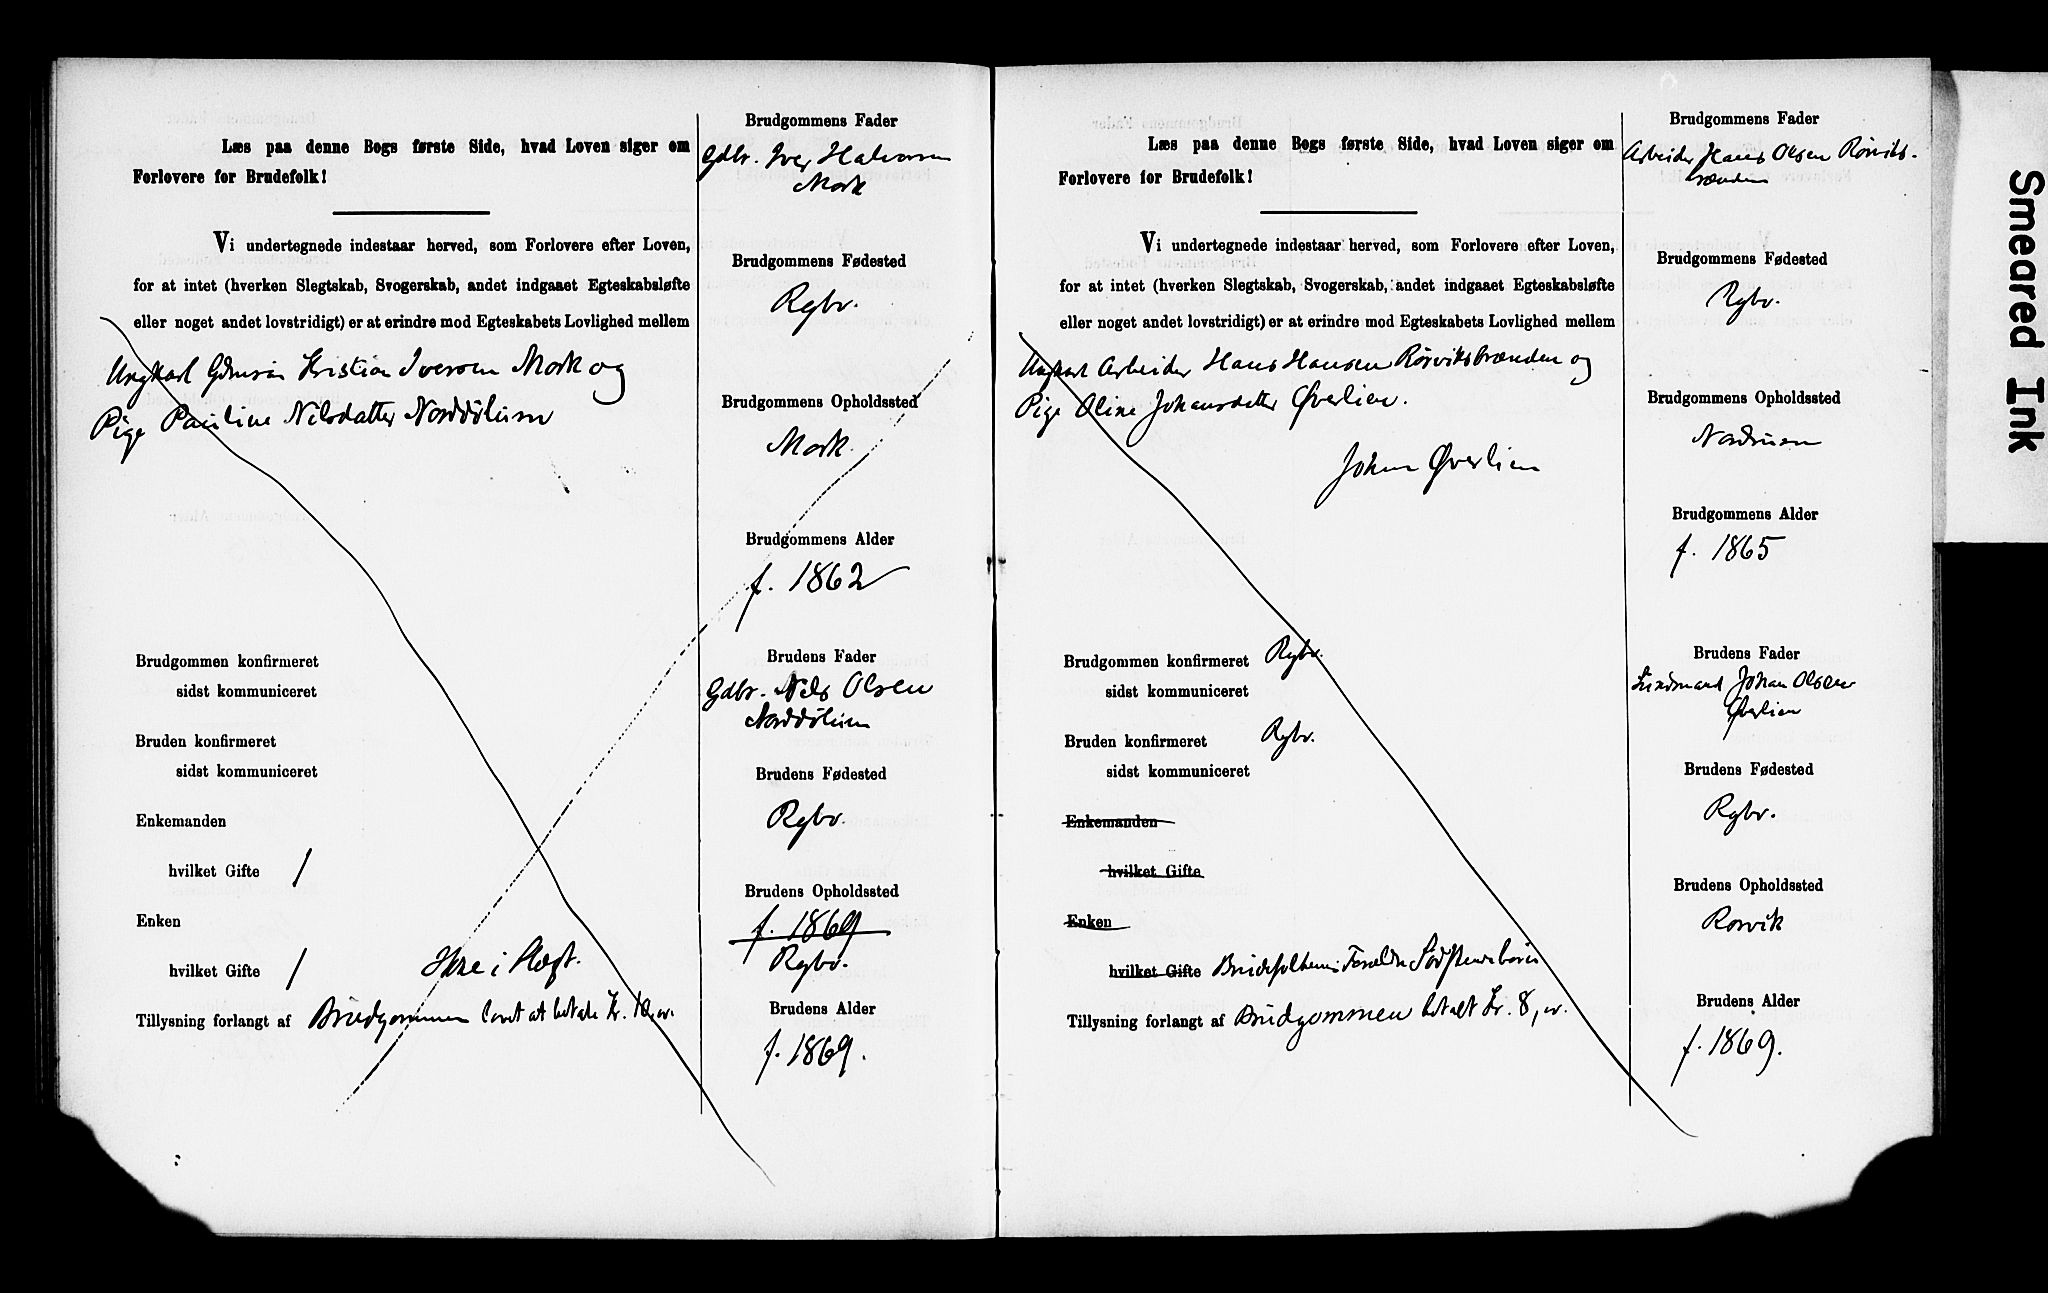 Læs paa denne Bogs første Side, hvad Loven siger om
Forlovere for Brudefolk!
Vi undertegnede indestaar herved, som Forlovere efter Loven,
for at intet (hverken Slegtskab, Svogerskab, andet indgaaet Egteskabsløfte
eller noget andet lovstridigt) er at erindre mod Egteskabets Lovlighed mellem
Ungkarl Gdmsøn Kristian Iversen Mork og
Pige Pauline Nilsdatter Norddølum
Brudgommen konfirmeret
sidst kommuniceret
Bruden konfirmeret
sidst kommuniceret
Enkemanden
hvilket Gifte /
Enken
Ikke i Slægt.
hvilket Gifte /
Tillysning forlangt af Brudgommen lovet at betale Kr.
Brudgommens Fader
Gdbr. Iver Halvorsen
Mork
Brudgommens Fødested
Rgbv.
Brudgommens Opholdssted
Mork.
Brudgommens Alder
f. 1862
Brudens Fader
Gdbr. Nils Olsen
Norddølum
Brudens Fødested
Rgbv.
Brudens Opholdssted
f. 1869
Rgbv.
Brudens Alder
f. 1869.
Læs paa denne Bogs første Side, hvad Loven siger om
Forlovere for Brudefolk!
Vi undertegnede indestaar herved, som Forlovere efter Loven,
for at intet (hverken Slegtskab, Svogerskab, andet indgaaet Egteskabsløfte
eller noget andet lovstridigt) er at erindre mod Egteskabets Lovlighed mellem
Ungkarl Arbeider Hans Hansen Rørviksbrænden og
Pige Oline Johansdatter Øverlien.
Johan Øverlien
Brudgommen konfirmeret Rgbv.
sidst kommuniceret
Bruden konfirmeret Rgbv.
sidst kommuniceret
Enkemanden
hvilket Gifte
Enken
hvilket Gifte Brudefolkenes Forældre Sødskendebørn
Tillysning forlangt af Brudgommen betalt Kr. 8,
Brudgommens Fader
Arbeider Hans Olsen Rørviks-
brænden
Brudgommens Fødested
Rgbv.
Brudgommens Opholdssted
Brudgommens Alder
f. 1865
Brudens Fader
Johan Olsen
Øverlien
Brudens Fødested
Rgbv.
Brudens Opholdssted
Rørvik
Brudens Alder
f. 1869.
Smeared Ink